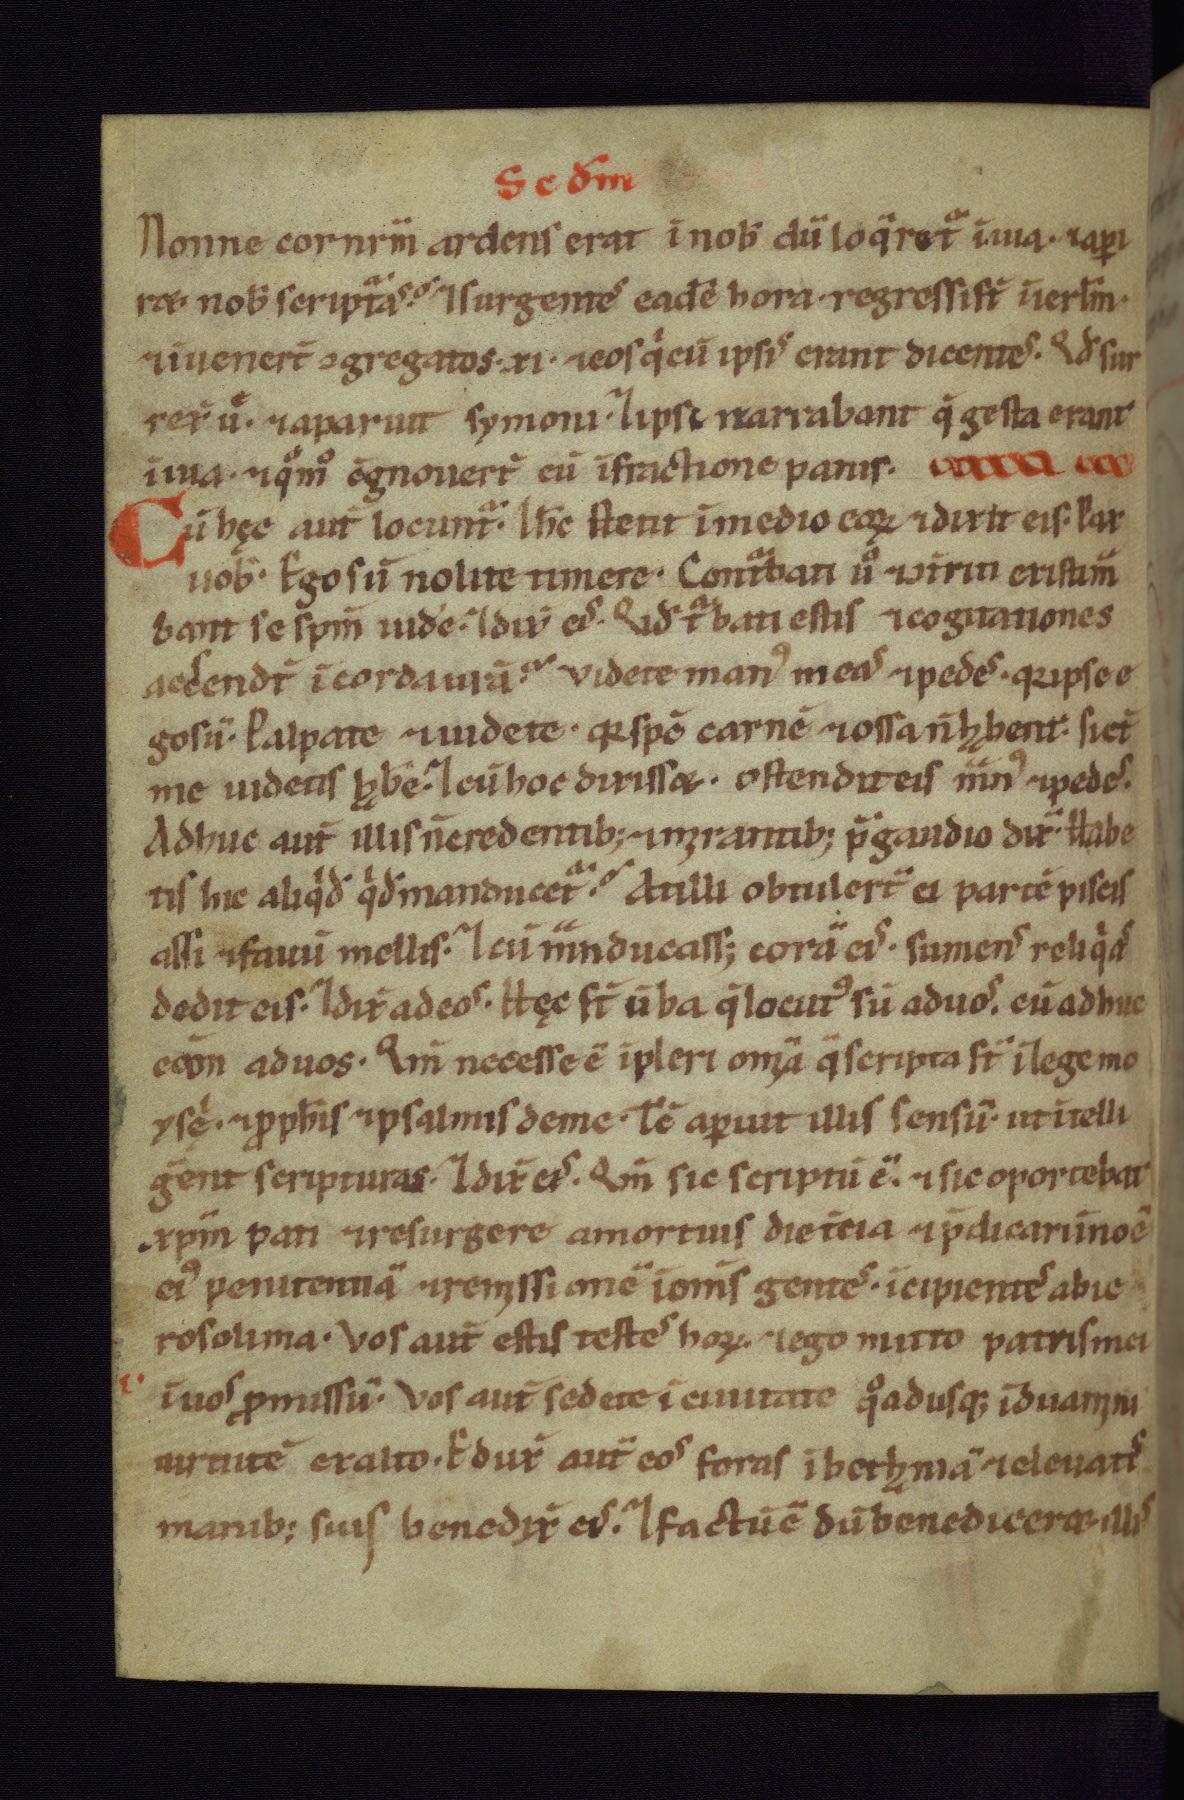 Sc̄dm
Nonne cor nr̄m ardens erat ī nob̄ dū loq̄ret ī uia · ⁊ aꝑi
ret nob̄ scriptas · Isurgentes eadē hora · regressi st̄ ī ierl̄m ·
⁊ īuener̄t ꝯgregatos · xi · ⁊ eos q̄ cū ipsis erant dicentes · Qd̄ sur
rex̄ ū · ⁊ aparuit symoni · I ipsi narrabant q̄ gesta erant
ī uia · ⁊ qm̄o c̄gnouer̄t eū ī fractione panis ·
Cū hęc aut̄ locunt̄ · Ih̄c stetit ī medio eoꝝ ⁊ dixit eis · Pax
uob̄ · Ego sū nolite timere · Cont̄bati ū ⁊ ꝯt̄riti existim̄
bant se spm̄ uidē · I dix̄ eis · Qid t̄bati estis ⁊ cogitationes
ascendt̄ ī corda urā · Videte man⁹ meas ⁊ pedes · qꝛ ipse e
go sū · Palpate ⁊ uidete · qꝛ spc̄ carnē ⁊ ossa n̄ hn̄t · sict̄
me uidetis hb̄e · I cū hoc dixisset · ostendit eis mn̄⁹ ⁊ pedes ·
Adhuc aut̄ illis n̄ credentib; ⁊ mirantib; p̄ gaudio dix̄ · Habe
tis hic aliqd̄ qd̄ manducet̄ · At illi obtuler̄t ei partē piscis
assi ⁊ fauū mellis · I cū mn̄ducass; corā eis · sumens reliqas
dedit eis · I dix̄ ad eos · Hęc st̄ ūba q̄ locut⁹ sū ad uos · cū adhuc
eēm ad uos · Qm̄ necesse ē īpleri om̄ia q̄ scripta st̄ ī lege mo
ysę · ⁊ ꝓph̄is ⁊ psalmis de me · Tc̄ aꝑuit illis sensū · ut ītelli
gent scripturas · I dix̄ eis · Qm̄ sic scriptū ē · ⁊ sic oportebat
xpm̄ pati ⁊ resurgere a mortuis die t̄cia ⁊ p̄dicari ī noē
ei⁹ penitentiā ⁊ remissionē ī om̄s gentes · īcipientes ab ie
rosolima · Vos aut̄ estis testes hoꝝ · ⁊ ego mitto patris mei
ī uos ꝓmissū · Vos aut̄ sedete ī ciuitate qo adusq; īduamini
uirtutē ex alto · Edux̄ aut̄ eos foras ī bethaniā ⁊ eleuat̄s
manib; suis benedix̄ eis · I factū ē dū benediceret illis